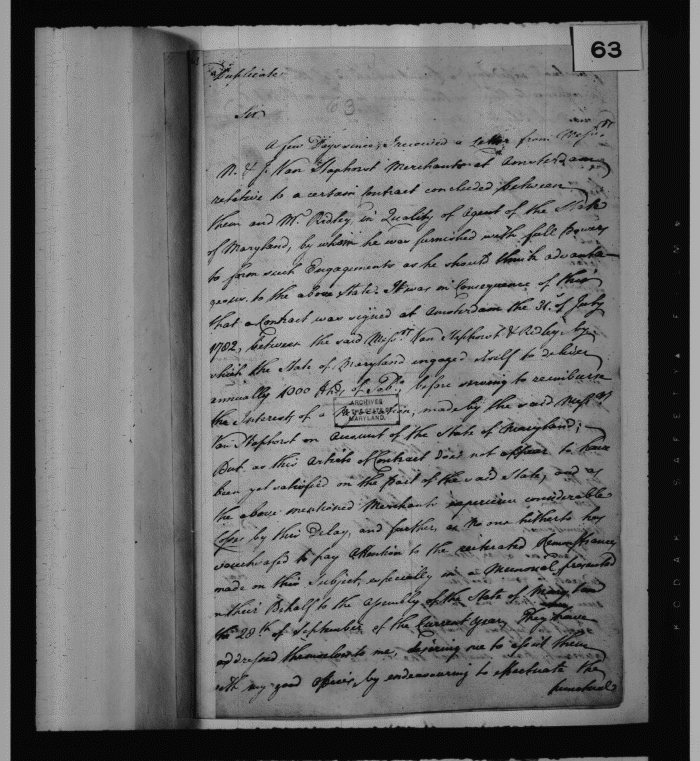 63
Duplicate
Sir
63
A few Days since, I received a Letter from Mess.rs
N. & J. Van Staphorst Merchants at Amsterdam
relative to a certain Contract concluded between
them and Mr. Ridley, in Quality of Agent of the State
of Maryland, by whom he was furnished with full Powers
to form such Engagements as he should think advanta-
geous to the above State. It was in Consequence of this
that a Contract was signed at Amsterdam the 31. of July
1782, between the said Mess.rs Van Staphorst & Ridley, by
which the State of Maryland engaged itself to deliver
annually 1000 Hhds. of Tobo. before serving to reimburse
the Interest of a made by the said Mess.rs
Van Staphorst on Account of the State of Maryland;
But as this Article of Contract does not appear to have
been yet satisfied on the part of the said State, and as
the above mentioned Merchants experience considerable
Loss by this Delay, and further, as no one hitherto has
vouchsafed to pay Attention to the reiterated Remonstrances
made on this Subject, especially in a Memorial, presented
in their Behalf to the Assembly of the State of Maryland
the 28th of September of the Current Year, They have
addressed themselves to me, desiring me to assist them
with my good offices, by endeavouring to effectuate the
punctual
ARCHIVES
MARYLAND.
KODAK SAFETY FILM